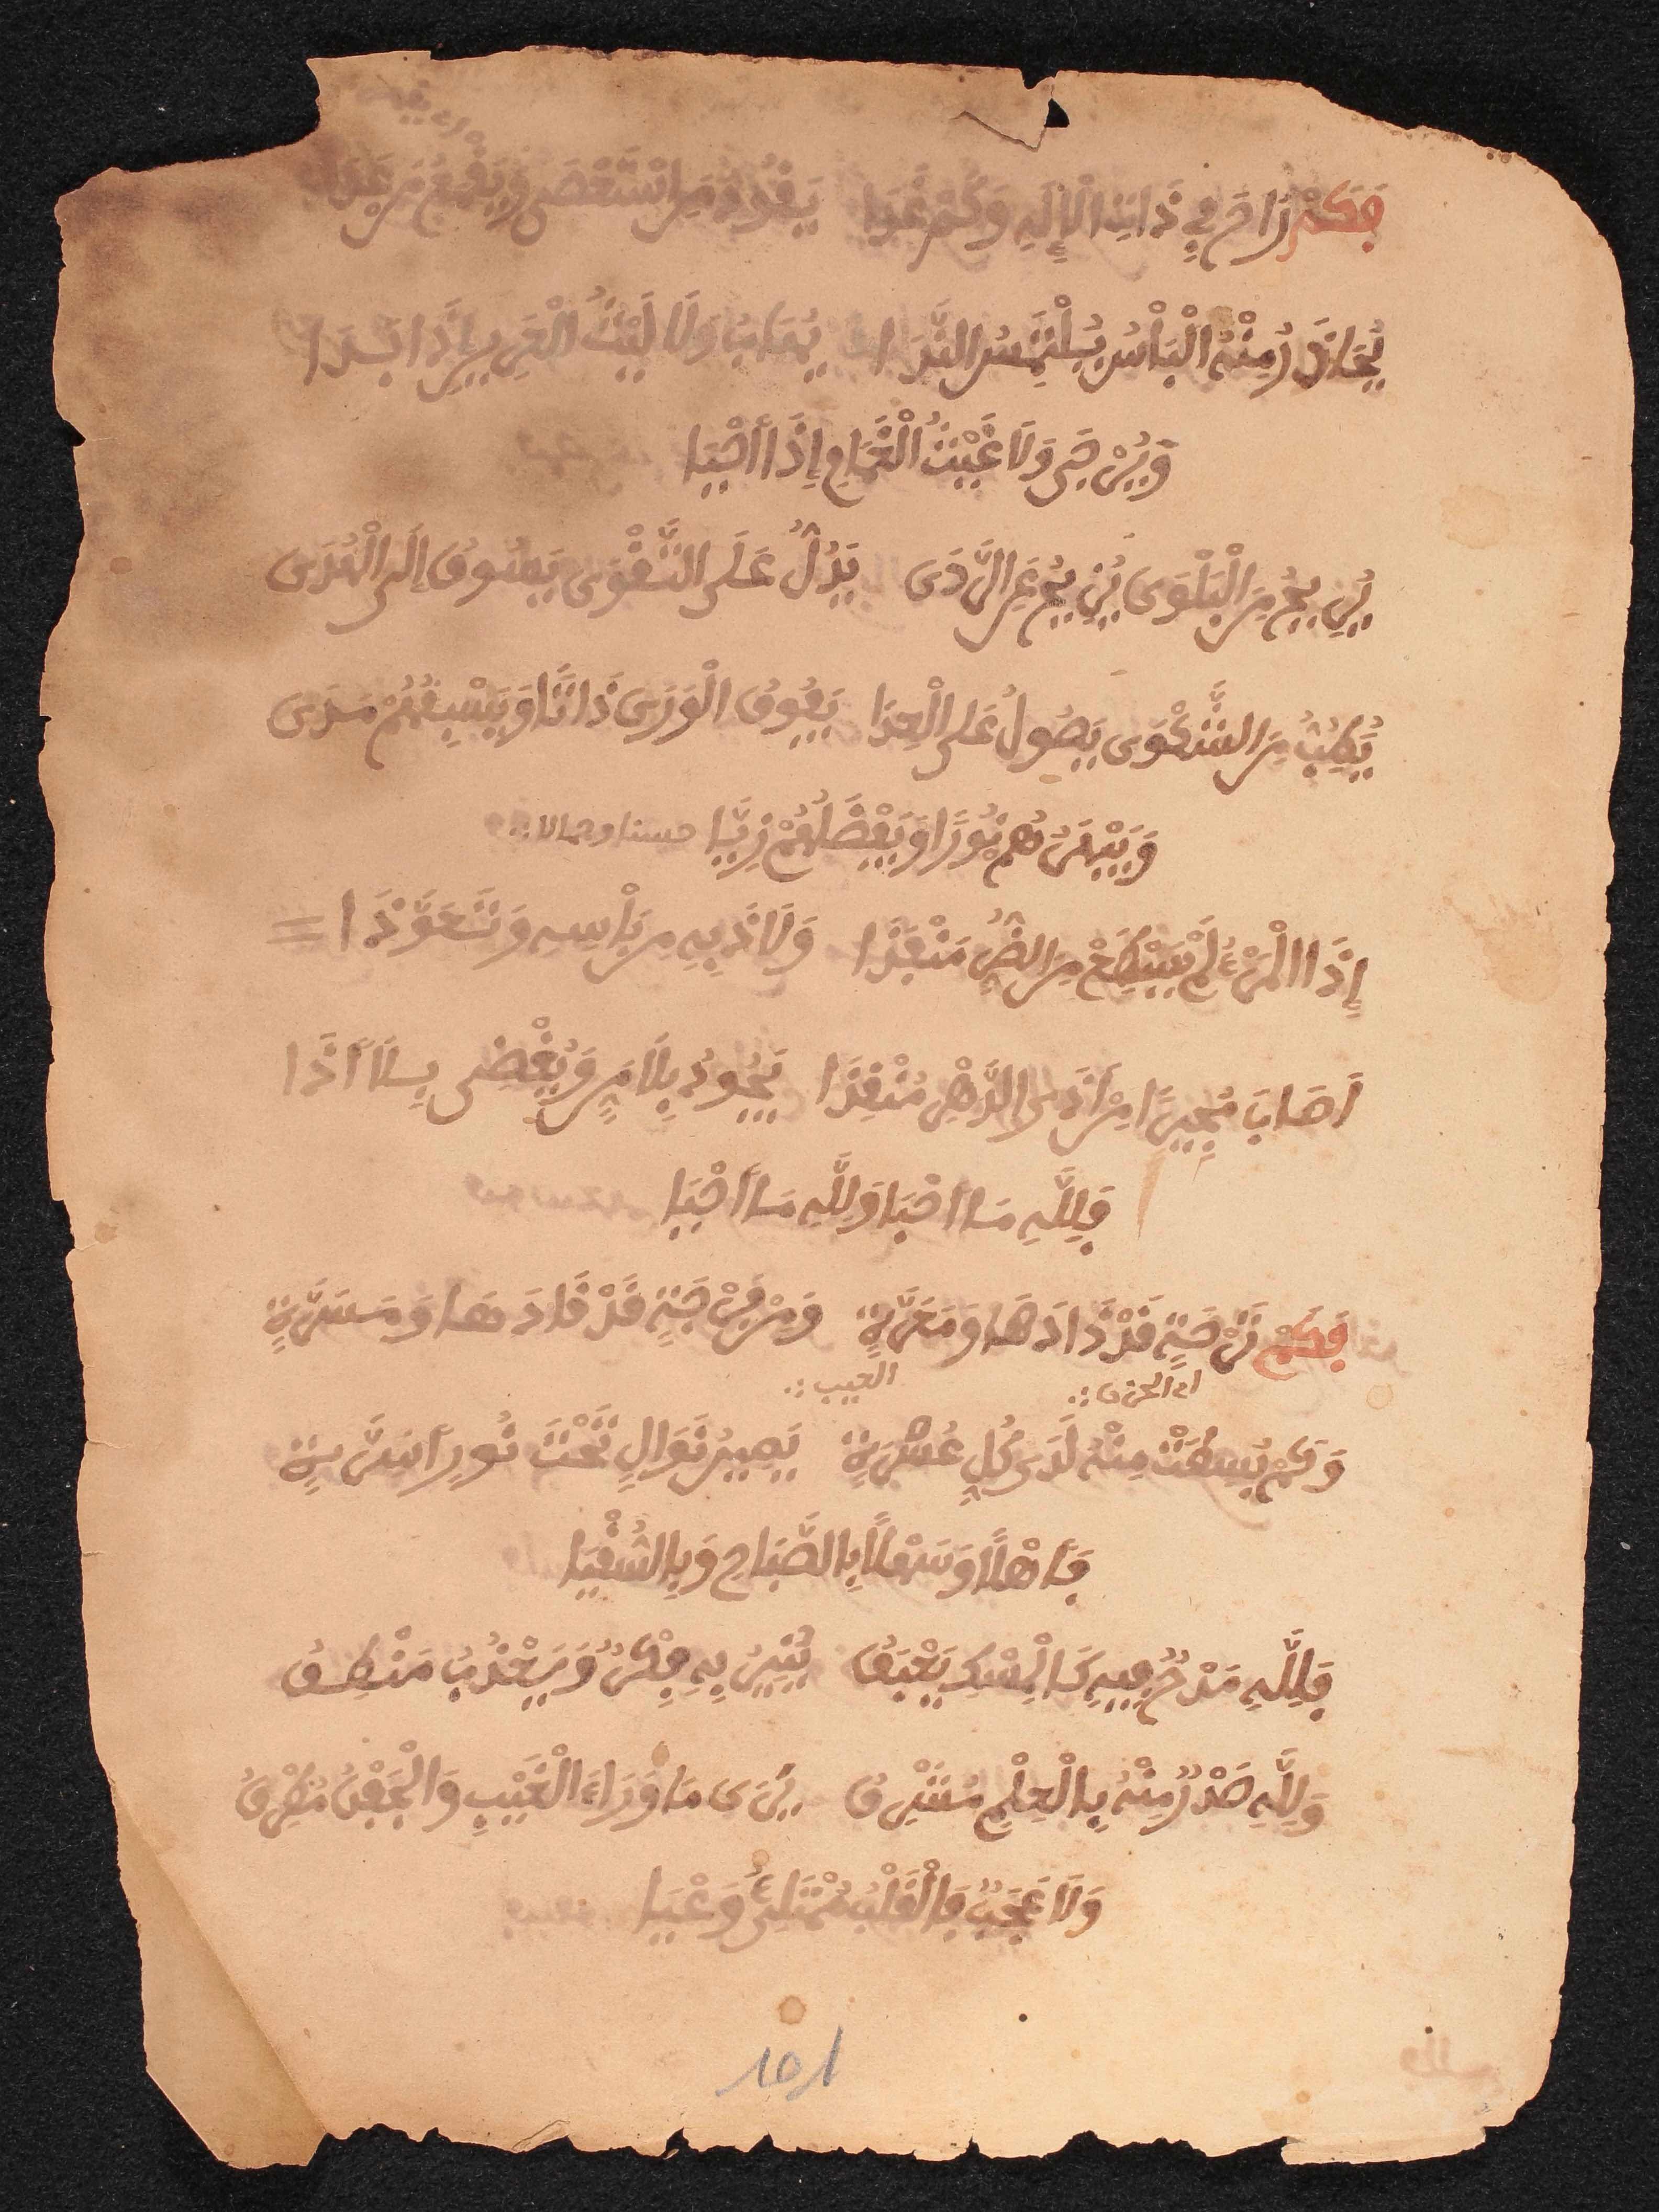 فَكَمْ رَاحَ فِي ذَاتِ الْإِلَهِ وَكَمْ غَدَا يَقُودُ مَنِ اسْتَعْصَى وَيَقْمَعُ مَنْ عَدَا
يُحَاذَرُ مِنْهُ الْبَأْسُ يُلْتَمَسُ النَّدَا يُهَابُ وَلَا لَيْثُ الْعَرِينِ إِذَا بَدَا
وَيُرْجَى وَلَا غَيْثُ الْغَمَامِ إِذَا أَحْيَا
يُرِيحُ مِنَ الْبَلْوَى يُزِيحُ عَنِ الرَّدَى يَدُلُّ عَلَى التَّقْوَى يَسُوقُ إِلَى الْهُدَى
يَكُفُّ مِنَ الشَّكْوَى يَصُولُ عَلَى الْعِدَا يَفُوقُ الْوَرَى ذَاتًا وَيَسْبِقُهُمْ مَدَى
وَيَبْهَرُهُمْ نُورًا وَيَفْضُلُهُمْ زِيَّا حسنا وجمالا
إِذَا الْمَرْءُ لَمْ يَسْطِعْ مِنَ الضُّرِّ مَنْفَذَا وَلَاذَ بِهِ مِنْ بَأْسِهِ وَتَعَوَّذَا =
أَهَابَ مُجِيرًا مِنْ أَذَى الدَّهْرِ مُنْقِذَا يَجُودُ بِلَا مَنٍّ وَيُغْضِى بِلَا أَذَا
فَلِلَّهِ مَا أَحْبَا وَلِلَّهِ مَا أَحْيَا
فَكَمْ تَرْحَةٍ قَدْ ذَادَهَا وَمَعَرَّةٍ وَمِنْ فَرْحَةٍ قَدْ قَادَهَا وَمَسَرَّةٍ
اى الحزن العيب
وَكَمْ بُسِطَتْ مِنْهُ لَدَى كُلِّ عُسْرَةٍ يَمِينُ نَوَالٍ تَحْتَ نُورِ أَسِرَّةٍ
فَأَهْلًا وَسَهْلًا بِالصَّبَاحِ وَبِالسُّقْيَا
فَلِلَّهِ مَدْحٌ فِيهِ كَالْمِسْكِ يَعْبَقُ يُنِيرُ بِهِ فِكْرٌ وَيَعْذُبُ مَنْطِقُ
وَلِلَّهِ صَدْرٌ مِنْهُ بِالْعِلْمِ مُشْرِقُ يَرَى مَا وَرَاءَ الْغَيْبِ وَالْجَفْنُ مُطْرِقُ
وَلَا عَجَبٌ فَالْقَلْبُ مُمْتَلِئٌ وَعْيَا